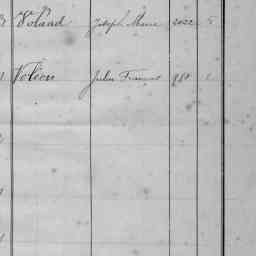 Volard Joseph Marie 2022 5
Voléon Julien François 968